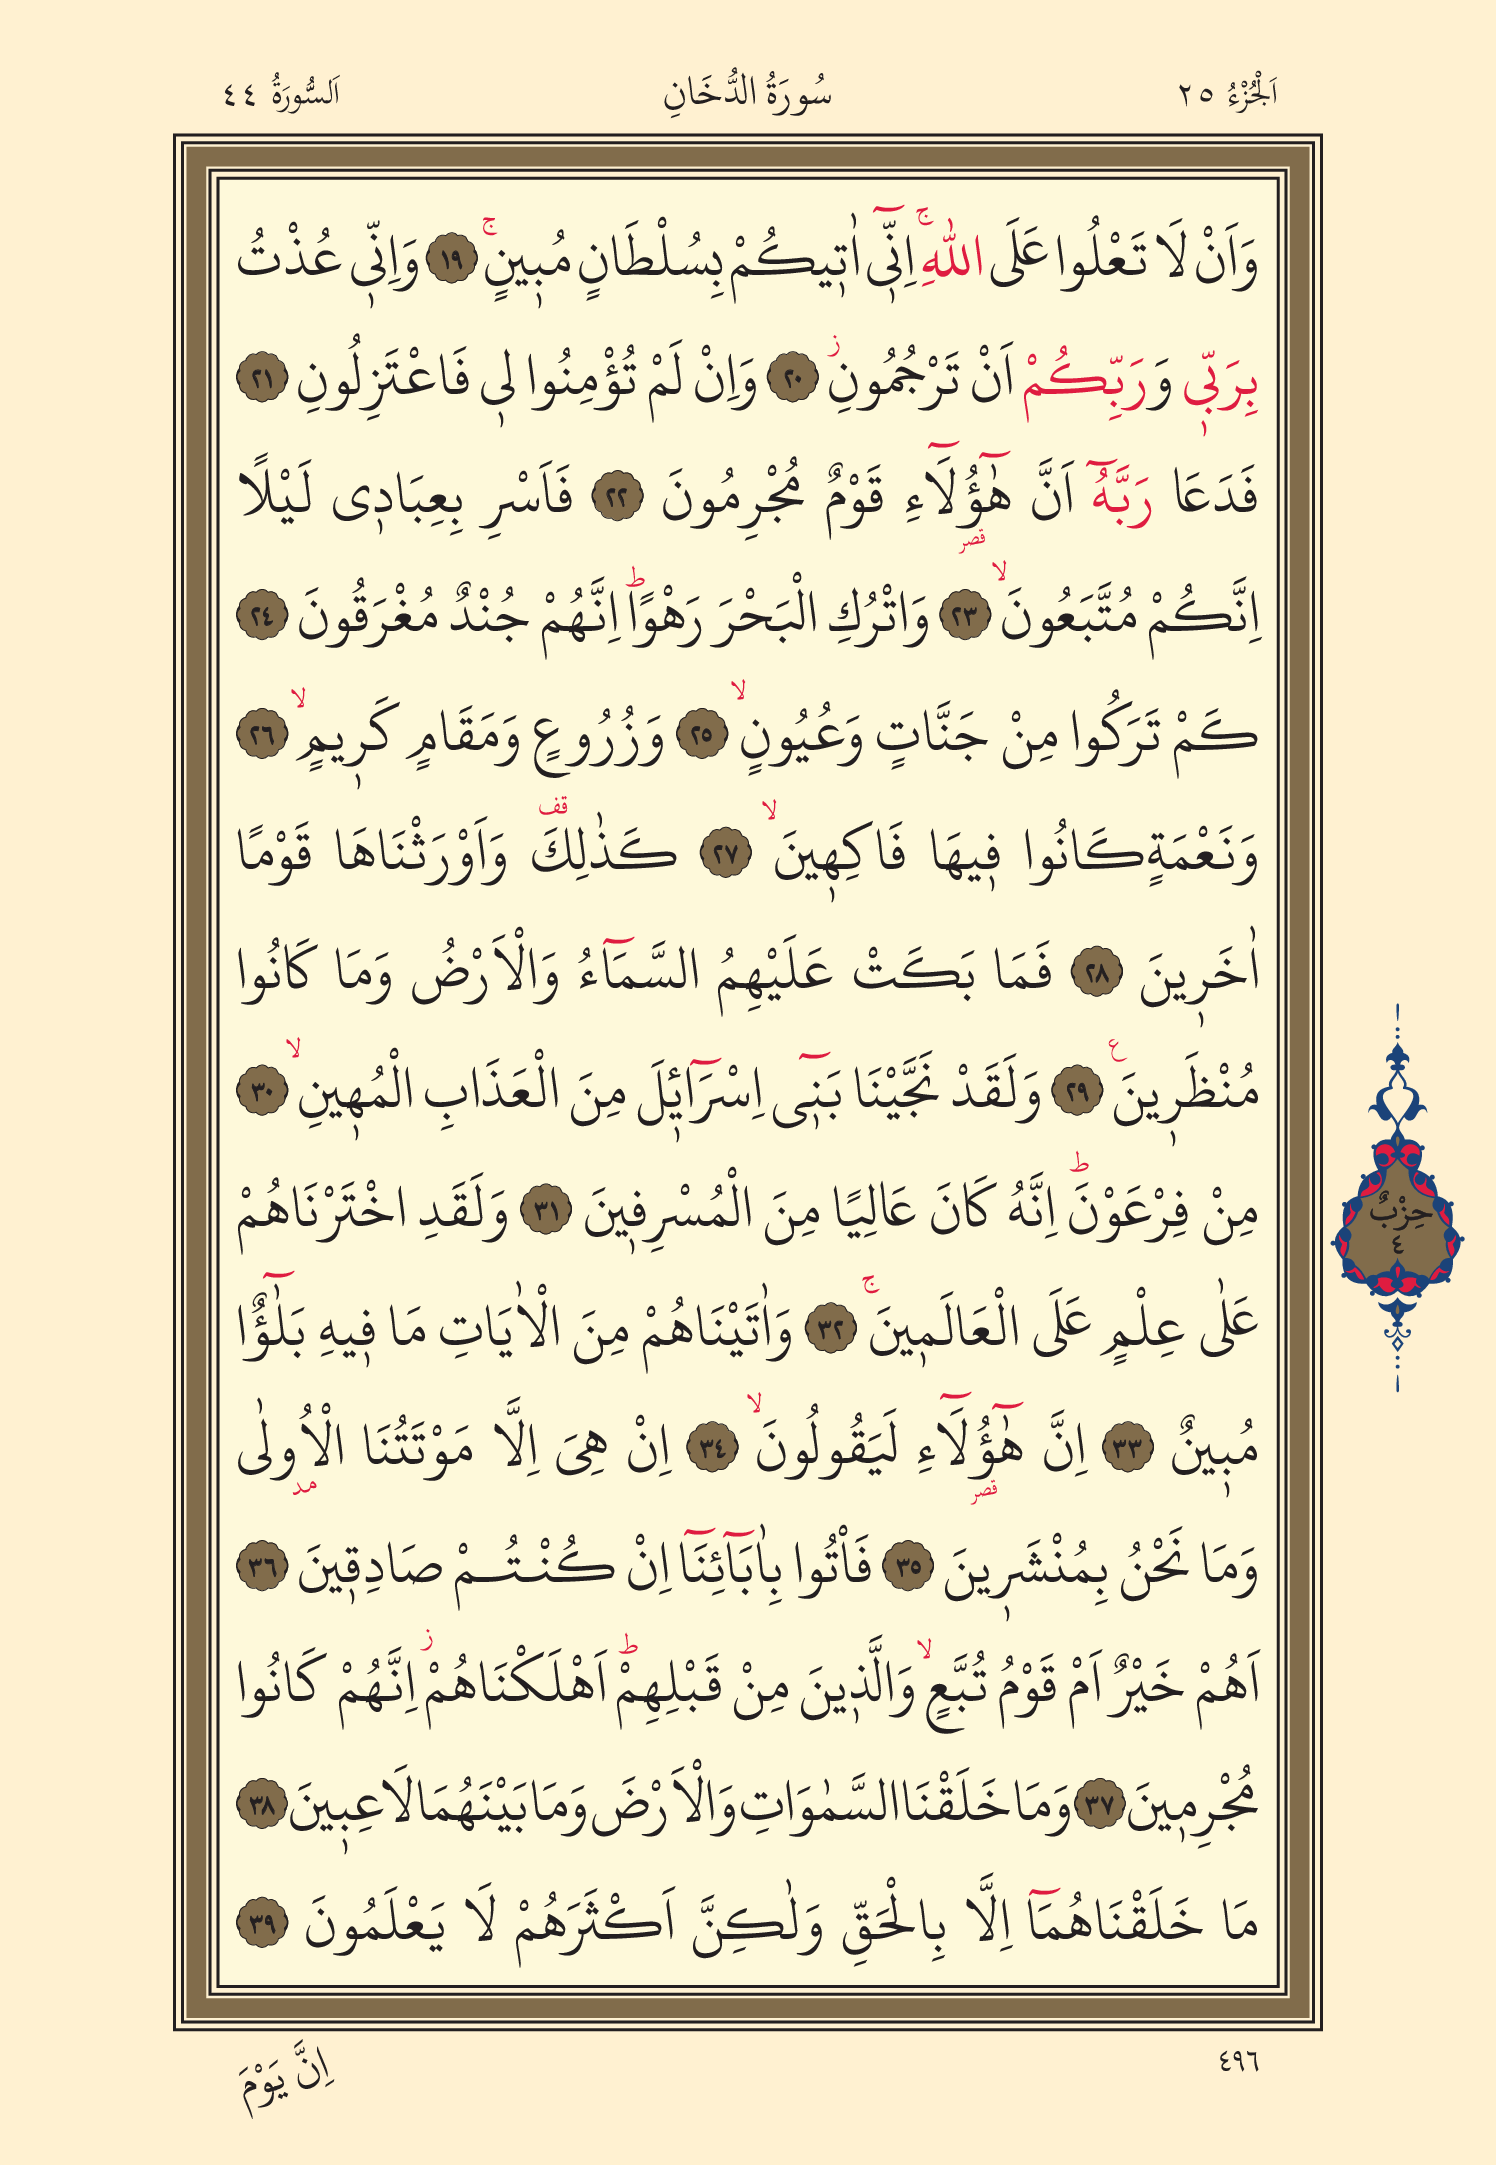 اَلْجُزْءُ ٢٥
سُورَةُ الدُّخَانِ
اَلسُّورَةُ ٤٤
وَاَنْ لَا تَعْلُوا عَلَى اللّٰهِۚ اِنّ۪ٓي اٰت۪يكُمْ بِسُلْطَانٍ مُب۪ينٍۚ ﴿١٩﴾ وَاِنّ۪ي عُذْتُ
بِرَبّ۪ي وَرَبِّكُمْ اَنْ تَرْجُمُونِۘ ﴿٢٠﴾ وَاِنْ لَمْ تُؤْمِنُوا ل۪ي فَاعْتَزِلُونِ ﴿٢١﴾
فَدَعَا رَبَّهُٓ اَنَّ هٰٓؤُ۬لَٓاءِ قَوْمٌ مُجْرِمُونَ ﴿٢٢﴾ فَاَسْرِ بِعِبَاد۪ي لَيْلًا
قصر
اِنَّكُمْ مُتَّبَعُونَۙ ﴿٢٣﴾ وَاتْرُكِ الْبَحْرَ رَهْوًاۜ اِنَّهُمْ جُنْدٌ مُغْرَقُونَ ﴿٢٤﴾
كَمْ تَرَكُوا مِنْ جَنَّاتٍ وَعُيُونٍۙ ﴿٢٥﴾ وَزُرُوعٍ وَمَقَامٍ كَر۪يمٍۙ ﴿٢٦﴾
وَنَعْمَةٍ كَانُوا ف۪يهَا فَاكِه۪ينَۙ ﴿٢٧﴾ كَذٰلِكَ۠ وَاَوْرَثْنَاهَا قَوْمًا
اٰخَر۪ينَ ﴿٢٨﴾ فَمَا بَكَتْ عَلَيْهِمُ السَّمَٓاءُ وَالْاَرْضُ وَمَا كَانُوا
مُنْظَر۪ينَ۟ ﴿٢٩﴾ وَلَقَدْ نَجَّيْنَا بَن۪ٓي اِسْرَٓاء۪يلَ مِنَ الْعَذَابِ الْمُه۪ينِۙ ﴿٣٠﴾
مِنْ فِرْعَوْنَۜ اِنَّهُ كَانَ عَالِيًا مِنَ الْمُسْرِف۪ينَ ﴿٣١﴾ وَلَقَدِ اخْتَرْنَاهُمْ
حِزْبٌ
٤
عَلٰى عِلْمٍ عَلَى الْعَالَم۪ينَۚ ﴿٣٢﴾ وَاٰتَيْنَاهُمْ مِنَ الْاٰيَاتِ مَا ف۪يهِ بَلٰٓؤٌا
مُب۪ينٌ ﴿٣٣﴾ اِنَّ هٰٓؤُ۬لَٓاءِ لَيَقُولُونَۙ ﴿٣٤﴾ اِنْ هِيَ اِلَّا مَوْتَتُنَا الْاُو۫لٰى
قصر مد
وَمَا نَحْنُ بِمُنْشَر۪ينَ ﴿٣٥﴾ فَأْتُوا بِاٰبَٓائِنَٓا اِنْ كُنْتُمْ صَادِق۪ينَ ﴿٣٦﴾
اَهُمْ خَيْرٌ اَمْ قَوْمُ تُبَّعٍۙ وَالَّذ۪ينَ مِنْ قَبْلِهِمْۜ اَهْلَكْنَاهُمْۘ اِنَّهُمْ كَانُوا
مُجْرِم۪ينَ ﴿٣٧﴾ وَمَا خَلَقْنَا السَّمٰوَاتِ وَالْاَرْضَ وَمَا بَيْنَهُمَا لَاعِب۪ينَ ﴿٣٨﴾
مَا خَلَقْنَاهُمَٓا اِلَّا بِالْحَقِّ وَلٰكِنَّ اَكْثَرَهُمْ لَا يَعْلَمُونَ ﴿٣٩﴾
٤٩٦
اِنَّ يَوْمَ